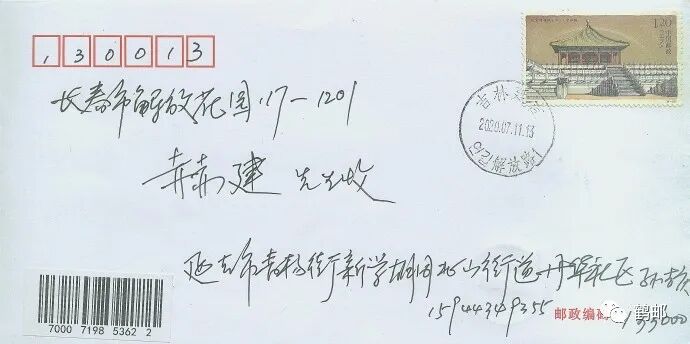 130013
1.20
中国邮政
长春市解放花园.17-1201
吉林延吉
2020.07.11.13
연길解放路1
赫建 先生收
延吉市青杨街新学胡同北山街道丹华社区 孙
15944349355
7000 7198 5362 2
邮政编码 133000
鹤邮